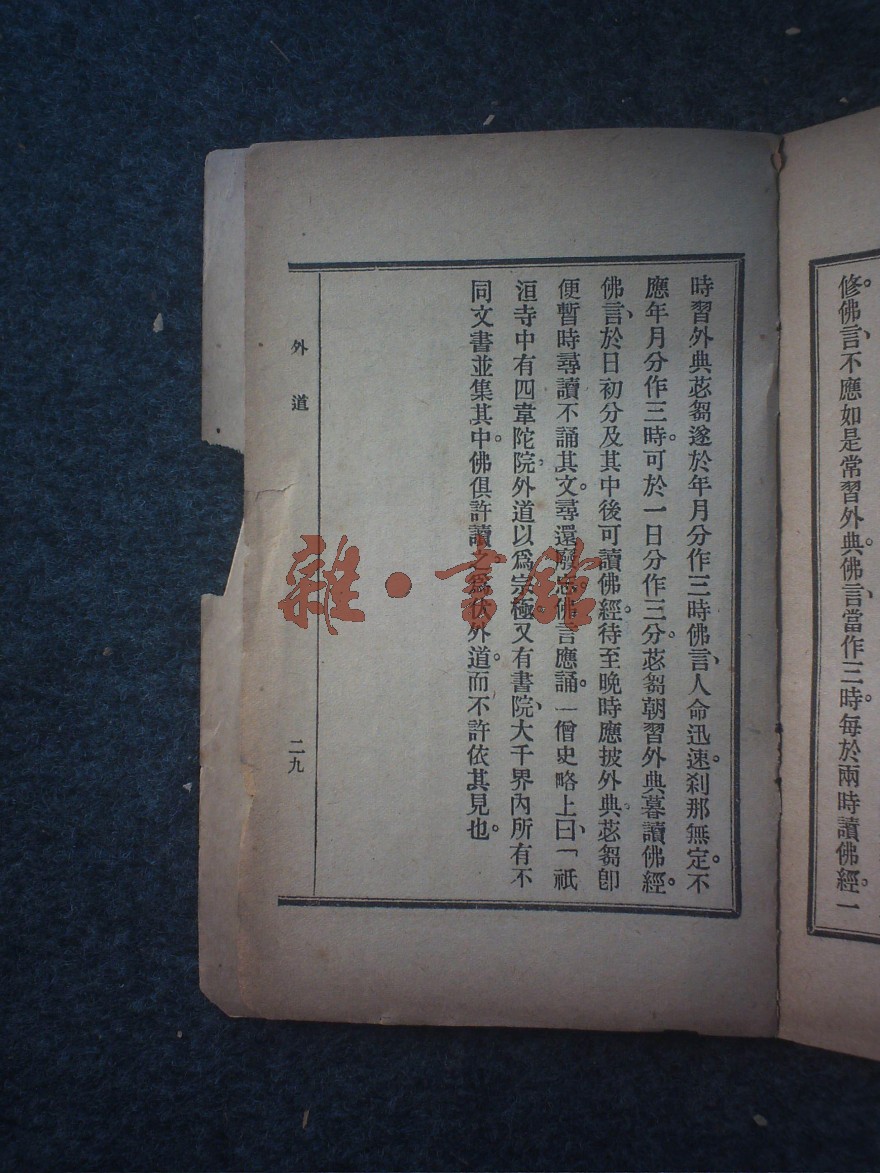 修佛言、不應如是常習外典。佛言、當作三時。每於兩時讀佛經。一
時習外典苾芻遂於年月分作三時佛言、人命迅速。刹那無定。不
應年月分作三時。可於一日分作三分。苾芻朝習外典暮讀佛經。
佛言、於日初分及其中後可讀佛經。待至晚時應披外典。苾芻即
便暫時尋讀不誦其文。尋還廢忘。佛言應誦。」僧史略上曰、「祇
洹寺中有四韋陀院。外道以爲宗極。又有書院、大千界內所有不
同文書並集其中。佛俱許讀之爲伏外道。而不許依其見也。
外道
二九
雜·書館